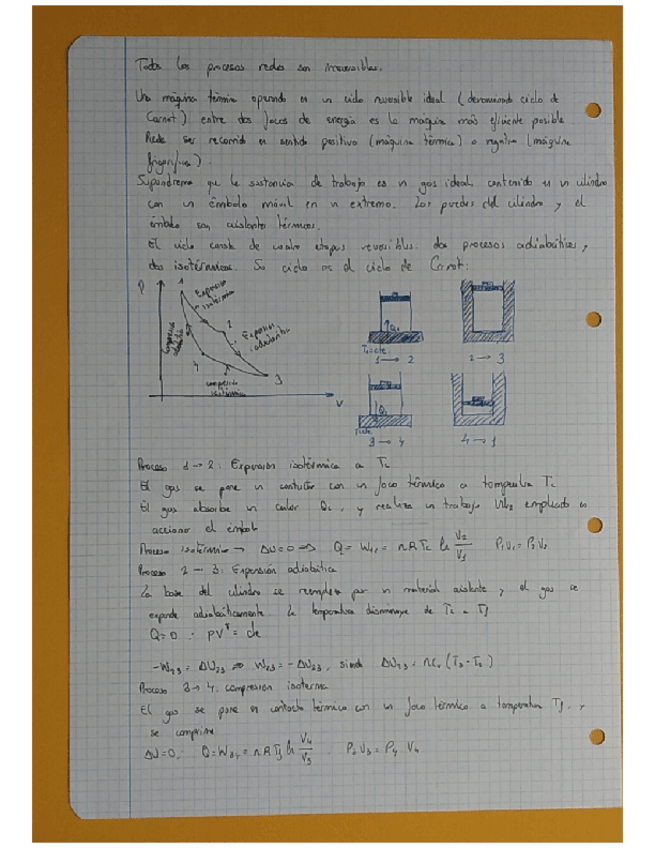 Todos los procesos reales son irreversibles.
Una máquina térmica operando en un ciclo reversible ideal (denominado ciclo de
Carnot) entre dos focos de energía es la máquina más eficiente posible
Puede ser recorrido en sentido positivo (máquina térmica) o negativo (máquina
frigorífica).
Supondremos que la sustancia de trabajo es un gas ideal, contenido en un cilindro
con un émbolo móvil en un extremo. Las paredes del cilindro y el
émbolo son aislantes térmicos.
El ciclo consta de cuatro etapas reversibles: dos procesos adiabáticos y
dos isotérmicos. Su ciclo es el ciclo de Carnot.
P
1
Expansión
isotérmica
2
Expansión
adiabática
Compresión
adiabática
4
compresión
isotérmica
3
V
1 → 2
2 → 3
3 → 4
4 → 1
Proceso 1 → 2: Expansión isotérmica a Tc
El gas se pone en contacto con un foco térmico a temperatura Tc
El gas absorbe un calor Qc, y realiza un trabajo W12 empleado en
accionar el émbolo
Proceso isotérmico → ΔU=0 ⇒ Q= W12 = nRTc ln V2/V1 P1V1 = P2V2
Proceso 2 → 3: Expansión adiabática
La base del cilindro se reemplaza por un material aislante, y el gas se
expande adiabáticamente. La temperatura disminuye de Tc a Tf
Q=0 ∴ PVγ = cte
-W23 = ΔU23 ⇒ W23 = -ΔU23, siendo ΔU23 = ncv (T3 - T2)
Proceso 3 → 4: compresión isoterma
El gas se pone en contacto térmico con un foco térmico a temperatura Tf, y
se comprime
ΔU=0 ∴ Q=W34 = nRTf ln V4/V3 ∴ P3V3 = P4 V4